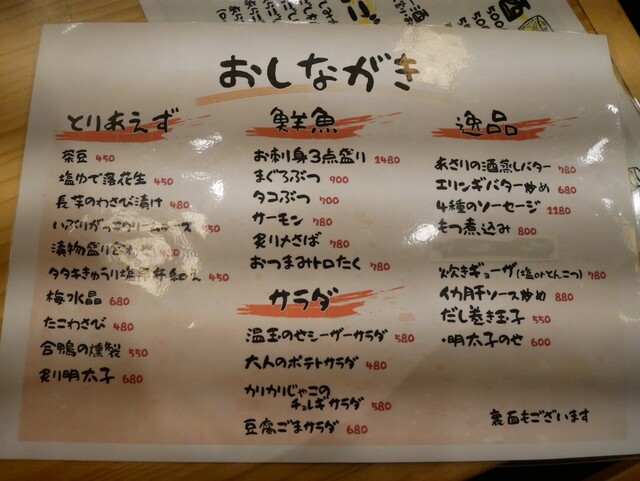 おしながき
とりあえず
茶豆 450
塩ゆで落花生 450
長芋のわさび漬け 480
いぶりがっこクリームチーズ 550
漬物盛り合わせ
タタキきゅうり塩昆布和え 450
梅水晶 680
たこわさび 480
合鴨の燻製 550
炙り明太子 680
鮮魚
お刺身3点盛り 1480
まぐろぶつ 900
タコぶつ 700
サーモン 780
炙り〆さば 780
おつまみトロたく 780
サラダ
温玉のせシーザーサラダ 580
大人のポテトサラダ 480
カリカリじゃこの
チョレギサラダ 580
豆腐ごまサラダ 680
逸品
あさりの酒蒸しバター 780
エリンギバター炒め 680
4種のソーセージ 1180
もつ煮込み 800
炊きギョーザ(塩orとんこつ) 780
イカ肝ソース炒め 880
だし巻き玉子 550
・明太子のせ 600
裏面もございます